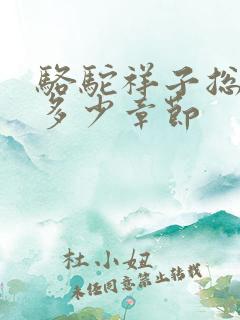 駱駝祥子总
多少章節
杜小妞
未经同意禁止转载